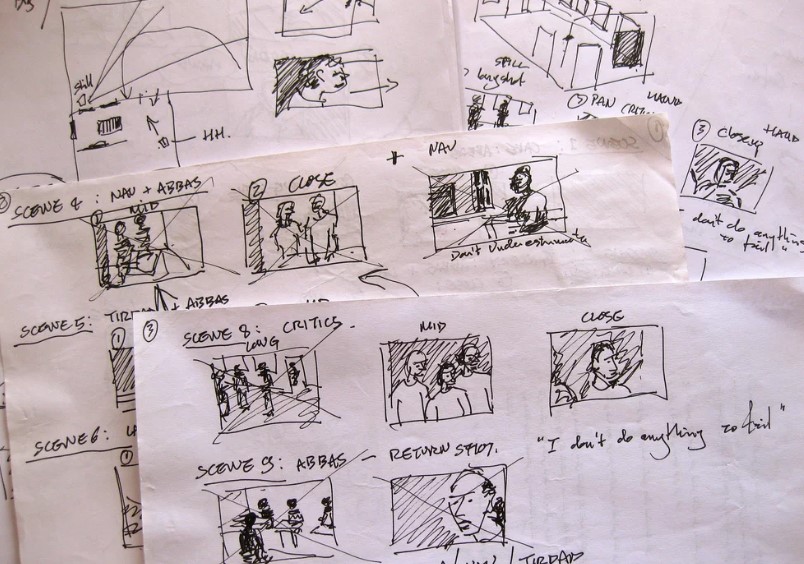 Still
HH.
STILL
long shot
② PAN
③ CLOSEUP HAND
don't do anything
to fail"
+ NAV
SCENE 4: NAV + ABBAS
① MID
② CLOSE
Don't Underestimate
SCENE 5:
+ ABBAS
①
SCENE 6:
①
③ SCENE 8: CRITICS.
LONG
MID
CLOSE
"I don't do anything to fail"
SCENE 9: ABBAS - RETURN